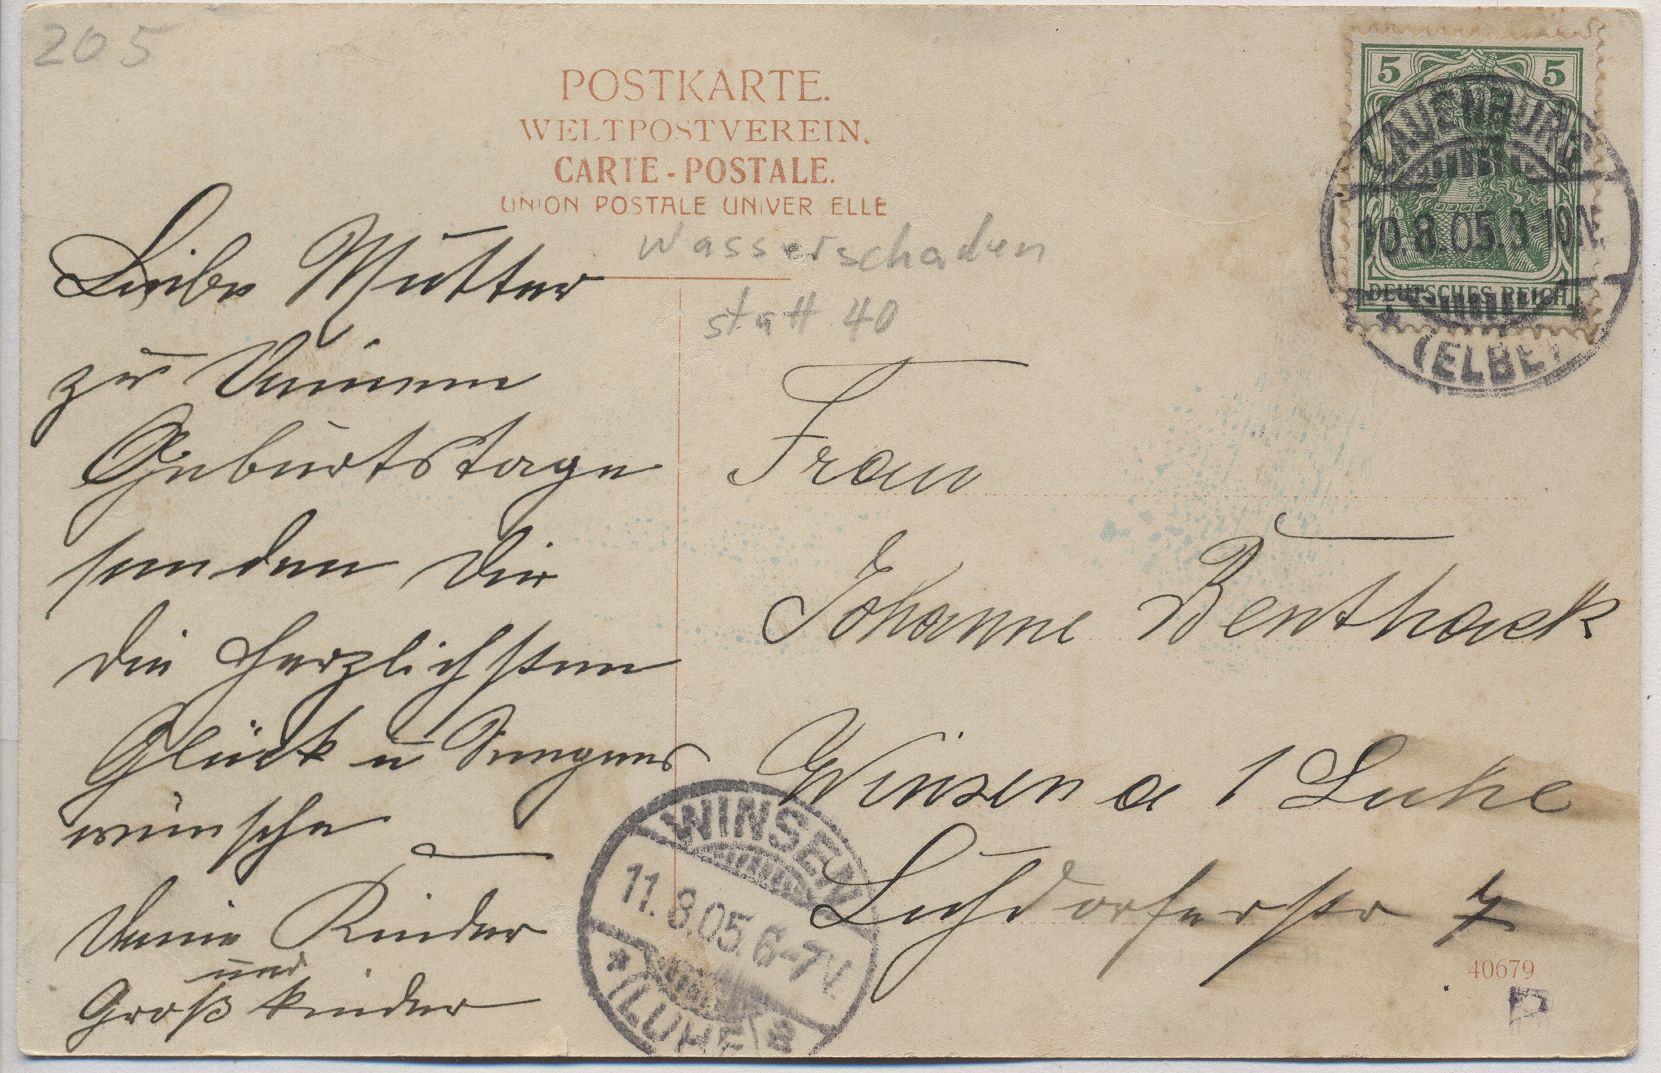 205
POSTKARTE.
WELTPOSTVEREIN.
CARTE-POSTALE.
UNION POSTALE UNIVER ELLE
Wasserschaden
statt 40
5 5
DEUTSCHES REICH
LAUENBURG
10.8.05. 9-10N.
(ELBE)
Liebe Mutter
zu Deinem
Geburtstage
senden Dir
die herzlichsten
Glück u Segens
wünsche
Deine Kinder
und
Großkinder
Frau
Johanne Benthack
Winsen a l Luhe
Luhdorferstr 7
WINSEN
11.8.05. 6-7V.
(LUHE) a
40679